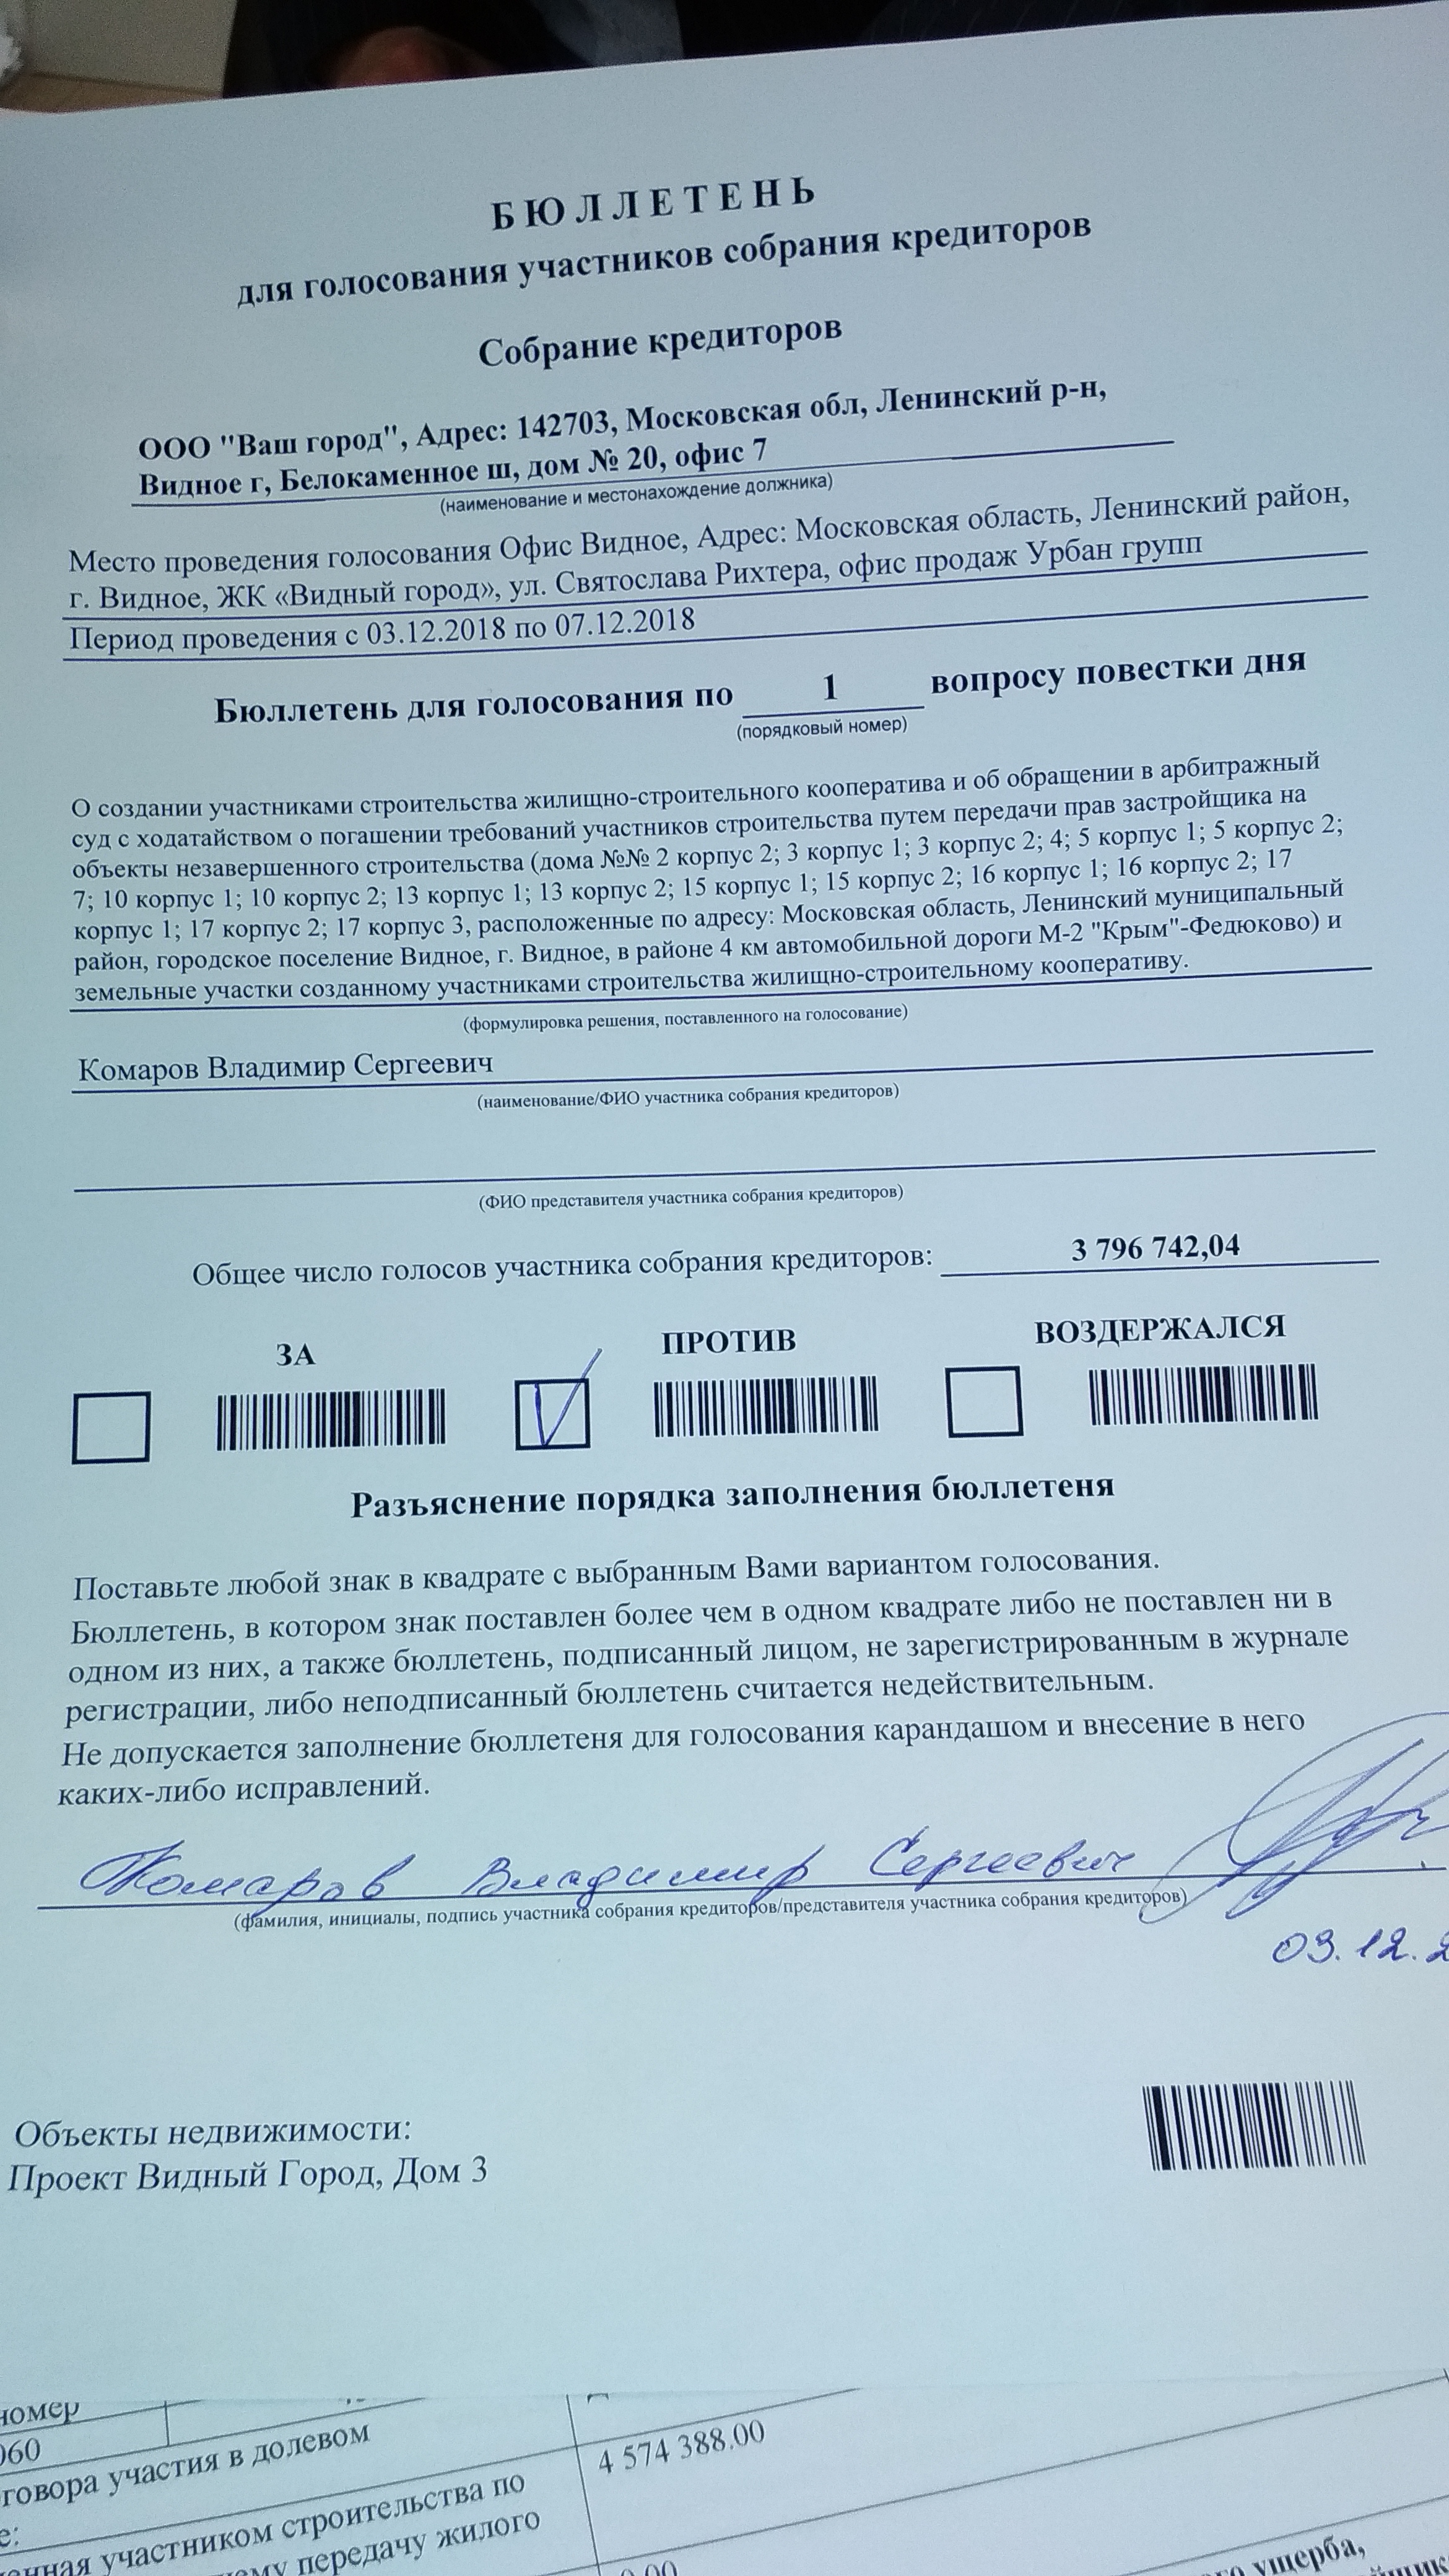 БЮЛЛЕТЕНЬ
для голосования участников собрания кредиторов
Собрание кредиторов
ООО "Ваш город", Адрес: 142703, Московская обл, Ленинский р-н,
Видное г, Белокаменное ш, дом № 20, офис 7
(наименование и местонахождение должника)
Место проведения голосования Офис Видное, Адрес: Московская область, Ленинский район,
г. Видное, ЖК «Видный город», ул. Святослава Рихтера, офис продаж Урбан групп
Период проведения с 03.12.2018 по 07.12.2018
Бюллетень для голосования по 1 вопросу повестки дня
(порядковый номер)
О создании участниками строительства жилищно-строительного кооператива и об обращении в арбитражный
суд с ходатайством о погашении требований участников строительства путем передачи прав застройщика на
объекты незавершенного строительства (дома №№ 2 корпус 2; 3 корпус 1; 3 корпус 2; 4; 5 корпус 1; 5 корпус 2;
7; 10 корпус 1; 10 корпус 2; 13 корпус 1; 13 корпус 2; 15 корпус 1; 15 корпус 2; 16 корпус 1; 16 корпус 2; 17
корпус 1; 17 корпус 2; 17 корпус 3, расположенные по адресу: Московская область, Ленинский муниципальный
район, городское поселение Видное, г. Видное, в районе 4 км автомобильной дороги М-2 "Крым"-Федюково) и
земельные участки созданному участниками строительства жилищно-строительному кооперативу.
(формулировка решения, поставленного на голосование)
Комаров Владимир Сергеевич
(наименование/ФИО участника собрания кредиторов)
(ФИО представителя участника собрания кредиторов)
Общее число голосов участника собрания кредиторов: 3 796 742,04
ЗА ПРОТИВ ВОЗДЕРЖАЛСЯ
Разъяснение порядка заполнения бюллетеня
Поставьте любой знак в квадрате с выбранным Вами вариантом голосования.
Бюллетень, в котором знак поставлен более чем в одном квадрате либо не поставлен ни в
одном из них, а также бюллетень, подписанный лицом, не зарегистрированным в журнале
регистрации, либо неподписанный бюллетень считается недействительным.
Не допускается заполнение бюллетеня для голосования карандашом и внесение в него
каких-либо исправлений.
Комаров Владимир Сергеевич
(фамилия, инициалы, подпись участника собрания кредиторов/представителя участника собрания кредиторов)
03.12.2
Объекты недвижимости:
Проект Видный Город, Дом 3
номер
060
говора участия в долевом
4 574 388.00
е:
участником строительства по
передачу жилого
0.00
ущерба,